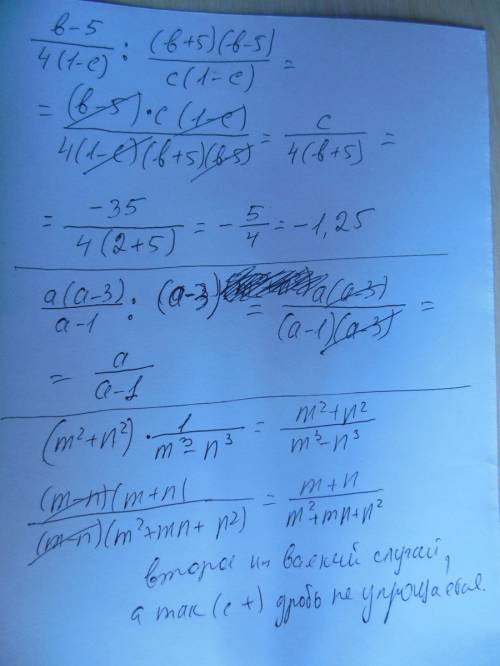 (в-5)/(4(1-c)) : ((в+5)(в-5))/(c(1-c)) =
= ((в-5)·c(1-c))/(4(1-c)(в+5)(в-5)) = c/(4(в+5)) =
= -35/(4(2+5)) = -5/4 = -1,25
(a(a-3))/(a-1) : (a-3) = (a(a-3))/((a-1)(a-3)) =
= a/(a-1)
(m²+n²) · 1/(m³-n³) = (m²+n²)/(m³-n³)
((m-n)(m+n))/((m-n)(m²+mn+n²)) = (m+n)/(m²+mn+n²)
второе на всякий случай,
а так (с +) дробь не упрощаевая.